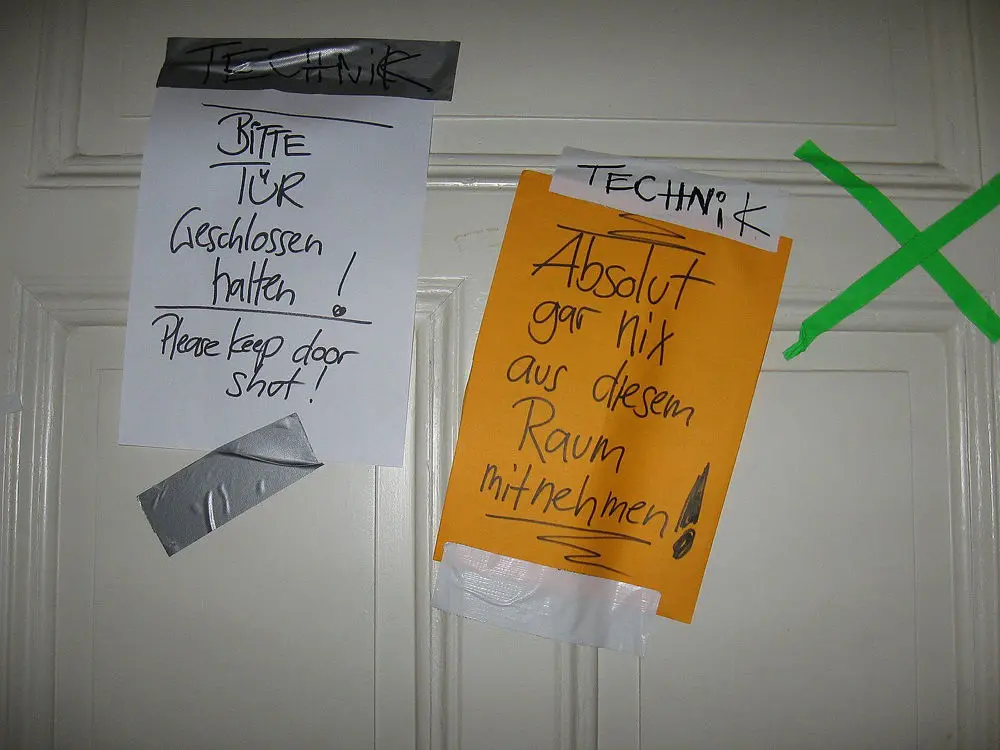 TECHNiK
BiTTE
TÜR
Geschlossen
halten !
Please keep door
shut!
TECHNiK
Absolut
gar nix
aus diesem
Raum
mitnehmen!